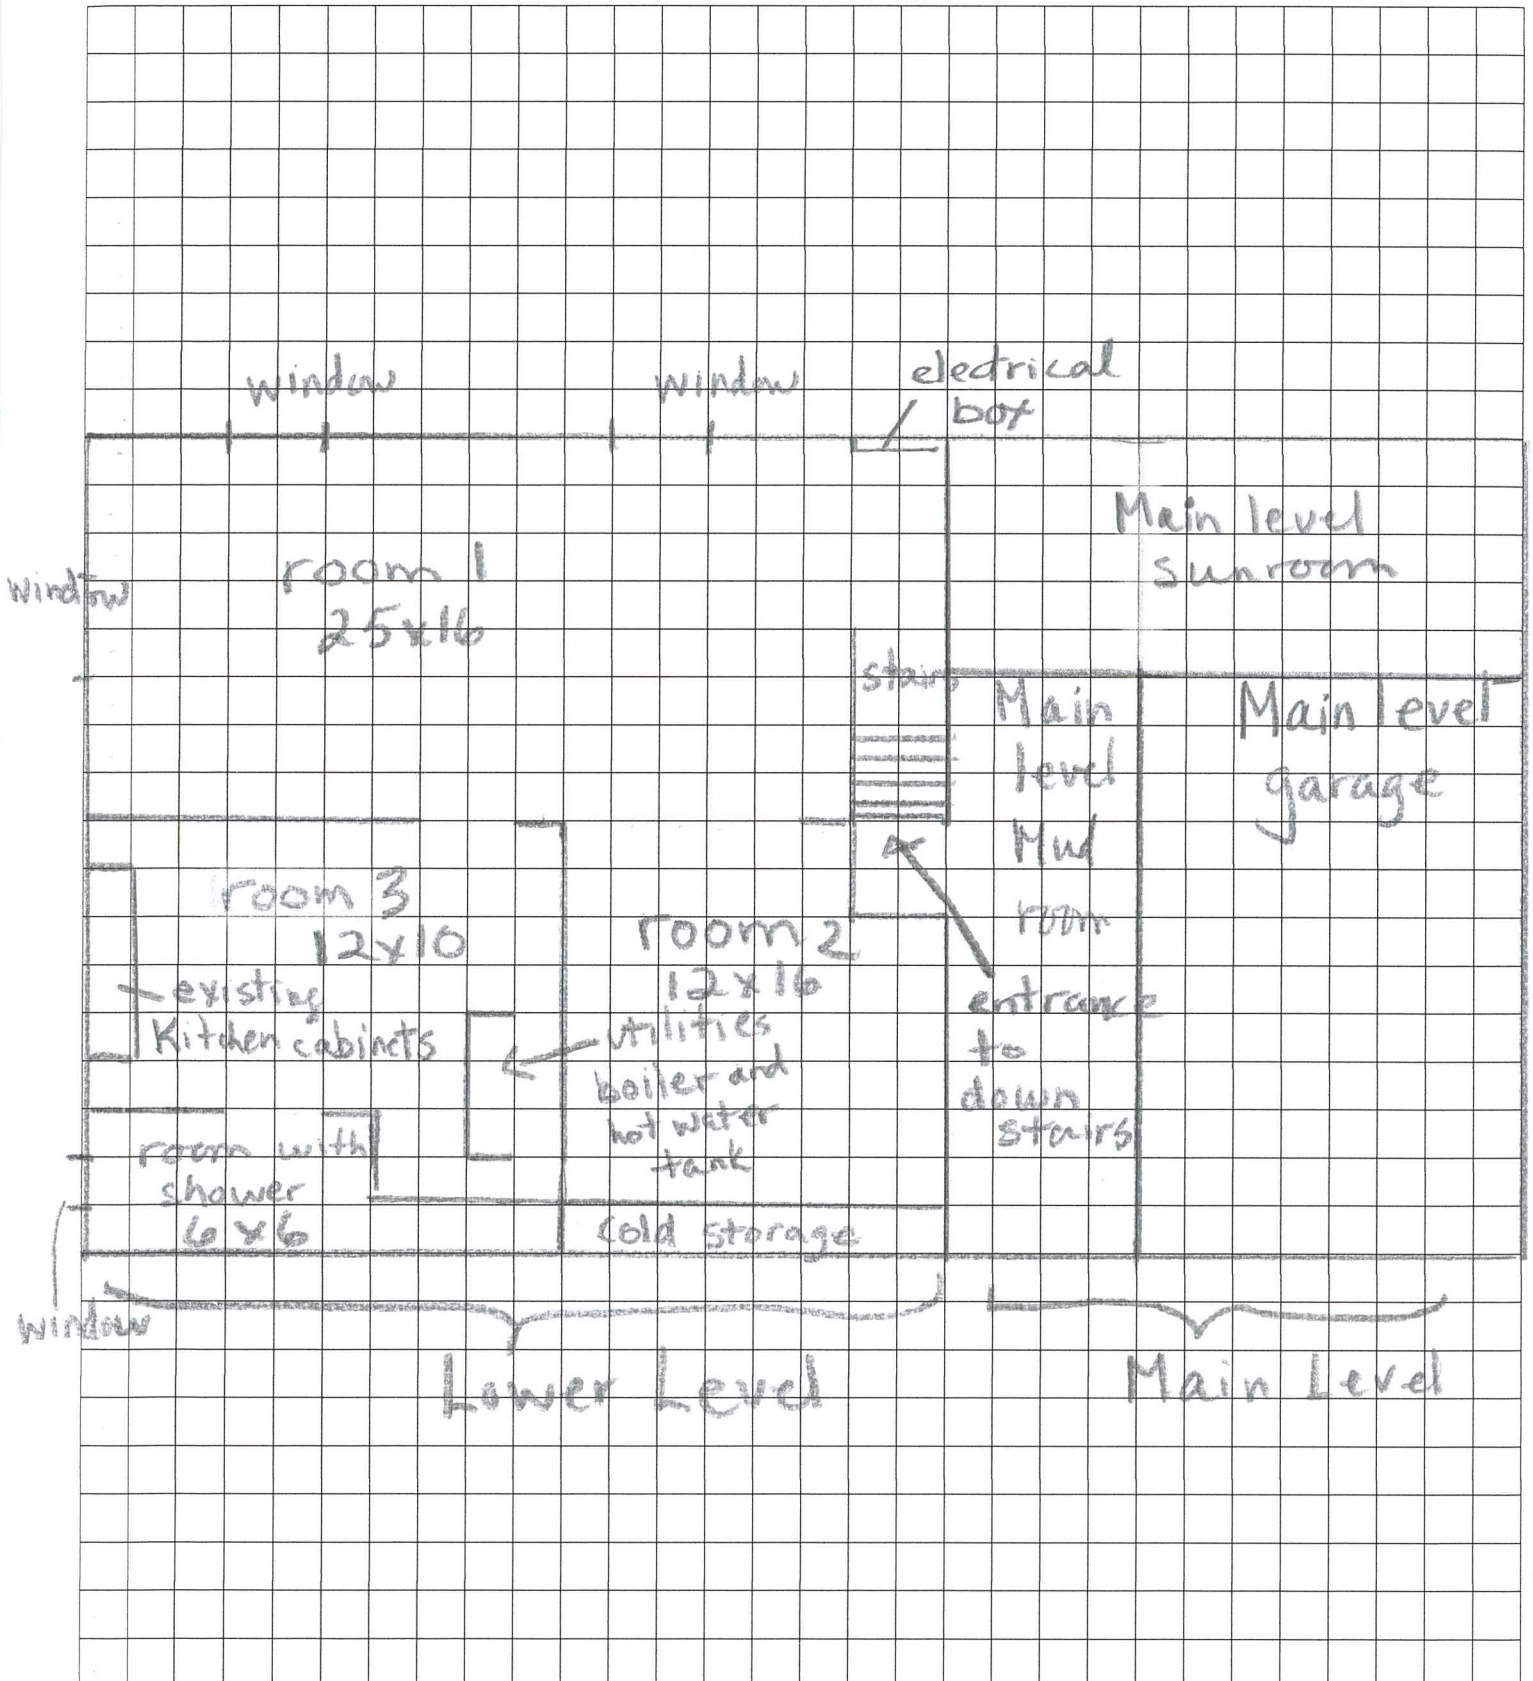 window
window
electrical
box
Main level
sunroom
room 1
25x16
window
stairs
Main
level
Mud
room
Main level
garage
room 3
12x10
existing
Kitchen cabinets
room 2
12x16
utilities
boiler and
hot water
tank
entrance
to
down
stairs
room with
shower
6x6
Cold storage
window
Lower Level
Main Level